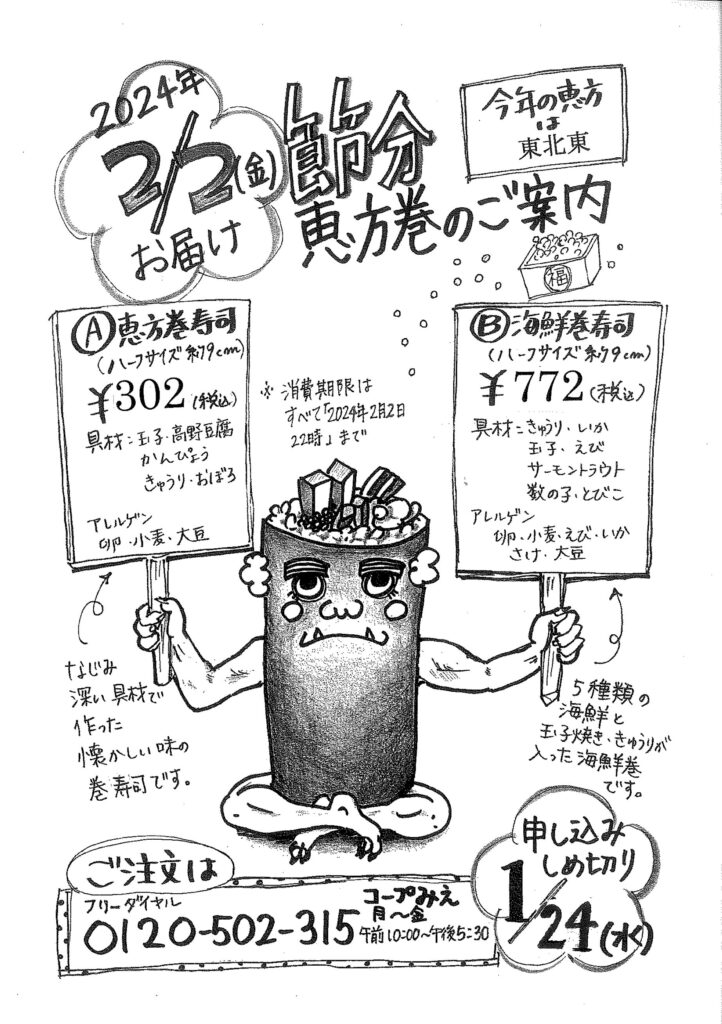 2024年
2/2(金)
お届け
節分
恵方巻のご案内
今年の恵方
は
東北東
福
Ⓐ恵方巻寿司
(ハーフサイズ約9cm)
¥302(税込)
具材:玉子・高野豆腐
かんぴょう
きゅうり・おぼろ
アレルゲン
卵・小麦・大豆
※消費期限は
すべて「2024年2月2日
22時」まで
Ⓑ海鮮巻寿司
(ハーフサイズ約9cm)
¥772(税込)
具材:きゅうり・いか
玉子・えび
サーモントラウト
数の子・とびこ
アレルゲン
卵・小麦・えび・いか
さけ・大豆
なじみ
深い具材で
作った
懐かしい味の
巻寿司です。
5種類の
海鮮と
玉子焼き・きゅうりが
入った海鮮巻
です。
ご注文は
フリーダイヤル
0120-502-315
コープみえ
月〜金
午前10:00〜午後5:30
申し込み
しめ切り
1/24(水)